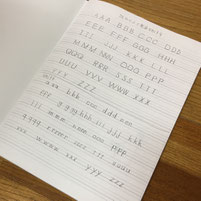 AAA BBB CCC DDD
EEE FFF GGG HHH
III JJJ KKK LLL
MMM NNN OOO PPP
QQQ RRR SSS TTT
UUU VVV WWW XXX
YYY ZZZ
aaa bbb ccc ddd eee
fff ggg hhh iii jjj kkk
lll mmm nnn ooo ppp
qqqq rrrr sss ttt uuuu
vvv www xxx yyy zzz